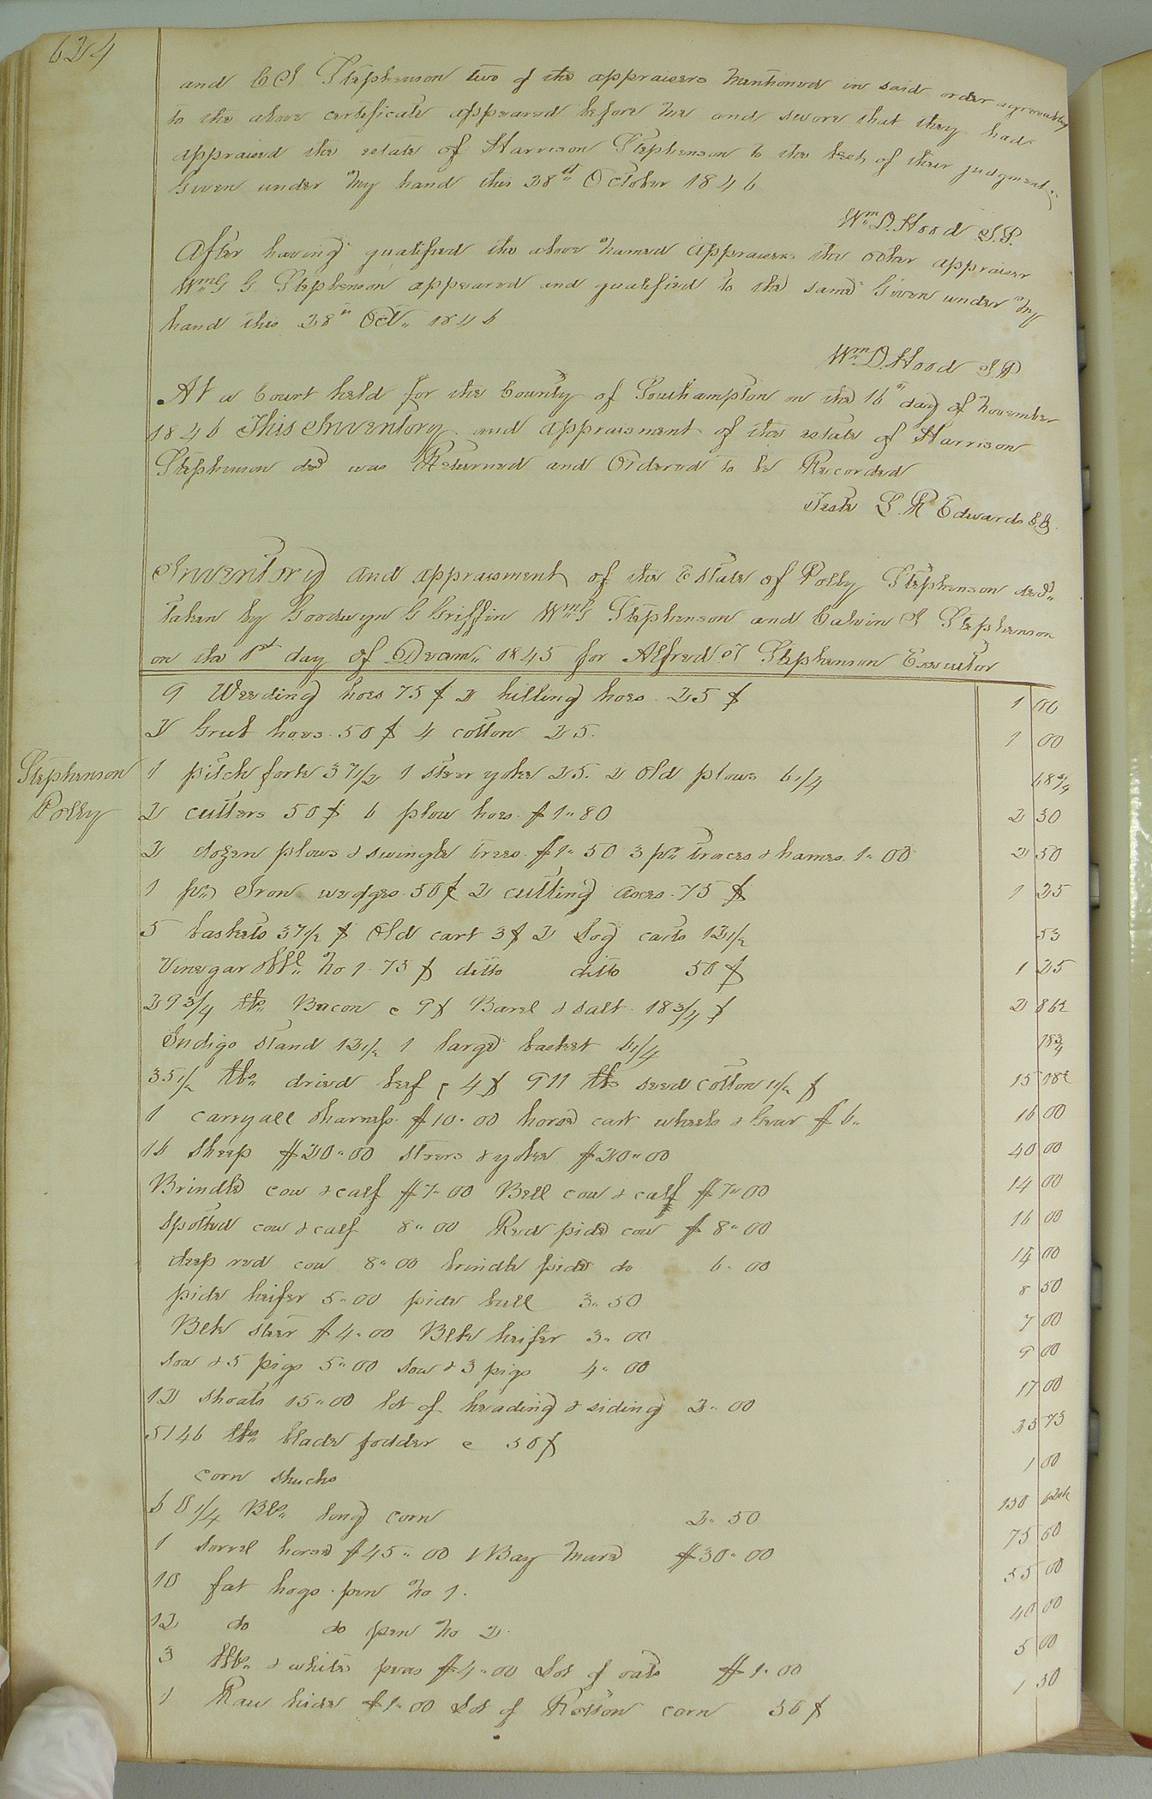 624
and C J Stephenson two of the appraisers mentioned in said order agreeably
to the above certificate appeared before me and swore that they had
appraised the estate of Harrison Stephenson to the best of their judgment
Given under my hand this 28th October 1846
Wm D. Hood J.P.
After having qualified the above named appraisers the other appraiser
Wm G Stephenson appeared and qualified to the same Given under my
hand this 28th Oct. 1846
Wm D. Hood J P
At a Court held for the County of Southampton on the 16th day of November
1846 This Inventory and appraisment of the estate of Harrison
Stephenson decd was Returned and Ordered to be Recorded
Teste L. R Edwards C.C.
Inventory and appraisment of the Estate of Polly Stephenson decd
taken by Goodwyn G Griffin Wm G Stephenson and Calvin J Stephenson
on the 1st day of Decem. 1845 for Alfred J Stephenson Executor
Stephenson
Polly
9 Weeding hoes 75 ¢ 2 hilling hoes 25 ¢ 1 00
2 Grub hoes 50 ¢ 4 cotton 25. 1 00
1 pitch fork 37 1/2 1 steer yoke 25. 2 Old plows 6 1/4 68 3/4
2 cutters 50 ¢ 6 plow hoes $1"80 2 30
2 dozen plows & swingle trees $1"50 3 pr traces & hames 1"00 2 50
1 pr Iron wedges 50 ¢ 2 cutting axes 75 ¢ 1 25
5 baskets 37 1/2 ¢ Old cart 3 ¢ 2 Log carts 12 1/2 53
Vinegar Bbl No 1 75 ¢ ditto ditto 50 ¢ 1 25
29 3/4 lbs Bacon @ 9 ¢ Barel & salt 18 3/4 ¢ 2 86
Indigo stand 12 1/2 1 large basket 6 1/4 18 3/4
35 1/2 lbs dried beef @ 4 ¢ 911 lbs seed cotton 1 1/2 ¢ 15 18
1 carryall & harness $10"00 horse cart wheels & Gear $6" 16 00
16 sheep $20"00 steers & yoke $20"00 40 00
Brindle cow & calf $7"00 Bell cow & calf $7"00 14 00
Spotted cow & calf 8"00 Red pide cow $8"00 16 00
deep red cow 8"00 brindle pide do 6"00 14 00
pide heifer 5"00 pide bull 3"50 8 50
Blk steer $4"00 Blk heifer 3"00 7 00
Sow & 5 pigs 5"00 Sow & 3 pigs 4"00 9 00
12 shoats 15"00 lot of heading & siding 2"00 17 00
5146 lbs blade fodder @ 50 ¢ 25 73
corn shucks 1 00
6 0 1/4 Bls long corn 2"50 150 62 1/2
1 sorrel horse $45"00 1 Bay Mare $30"00 75 00
10 fat hogs pen No 1. 55 00
12 do do pen No 2 40 00
3 & white peas $4"00 Lot of oats $1"00 5 00
1 Raw hide $1"00 Lot of Rotten corn 50 ¢ 1 50